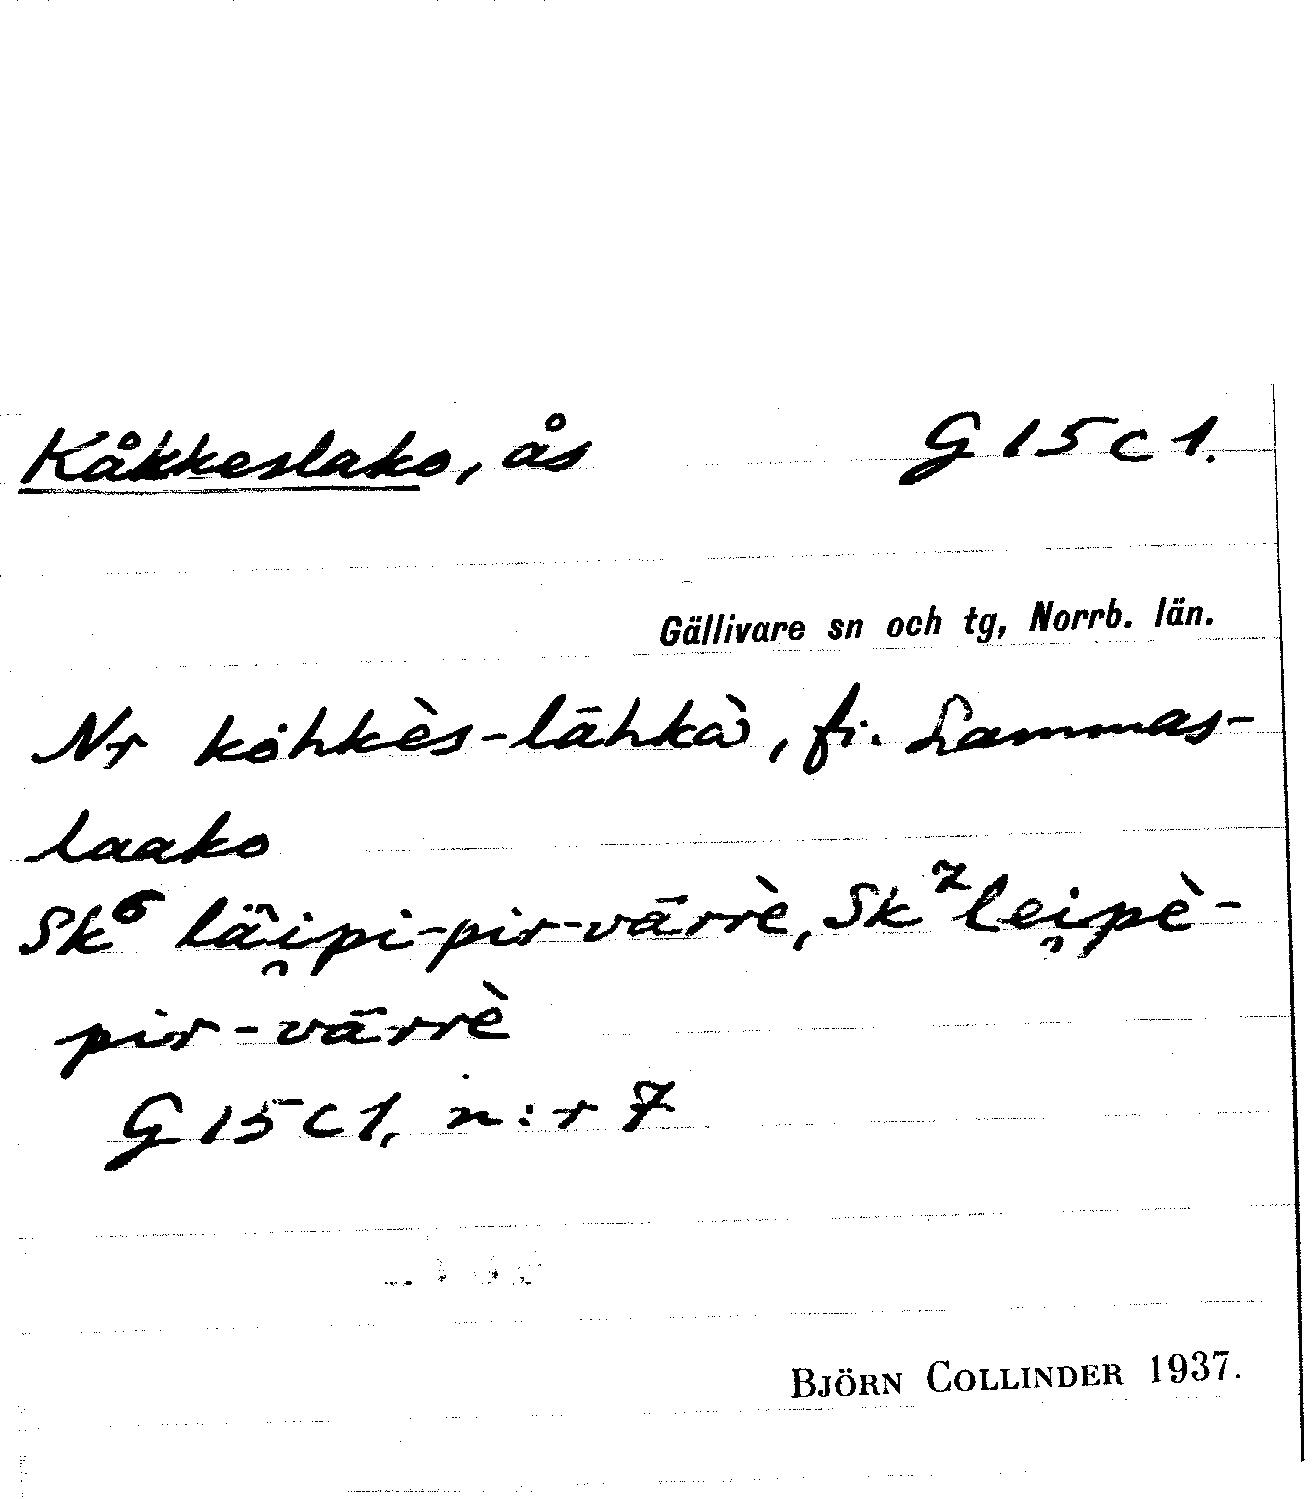 Kåkkeslako, ås G 15 c 1.
Gällivare sn och tg, Norrb. län.
Nr kȯhkès-lāhkà, fi. Lammas-
laako
Sk⁶ läi̯pi-pir-vārrè, Sk⁷ lei̯pè-
pir-vārrè
G 15 c 1, n:r 7
BJÖRN COLLINDER 1937.